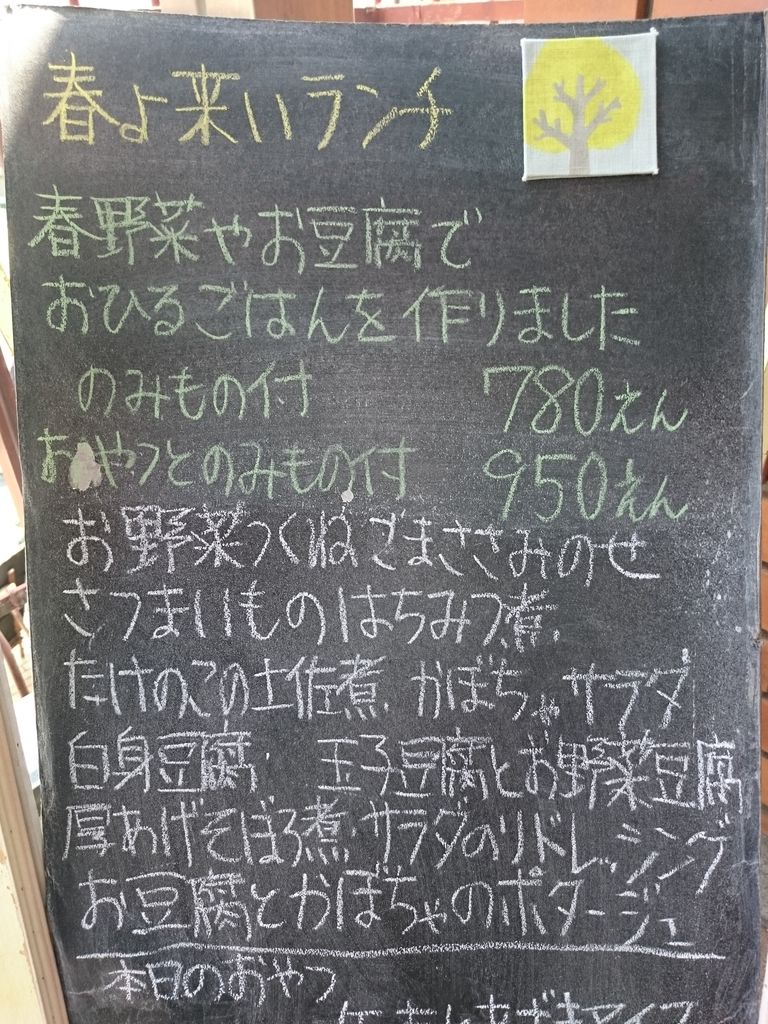 春よ来いランチ
春野菜やお豆腐で
おひるごはんを作りました
のみもの付 780えん
おやつとのみもの付 950えん
お野菜つくねごまささみのせ
さつまいものはちみつ煮
たけのこの土佐煮 かぼちゃサラダ
白身豆腐 玉子豆腐とお野菜豆腐
厚あげそぼろ煮 サラダのりドレッシング
お豆腐とかぼちゃのポタージュ
本日のおやつ